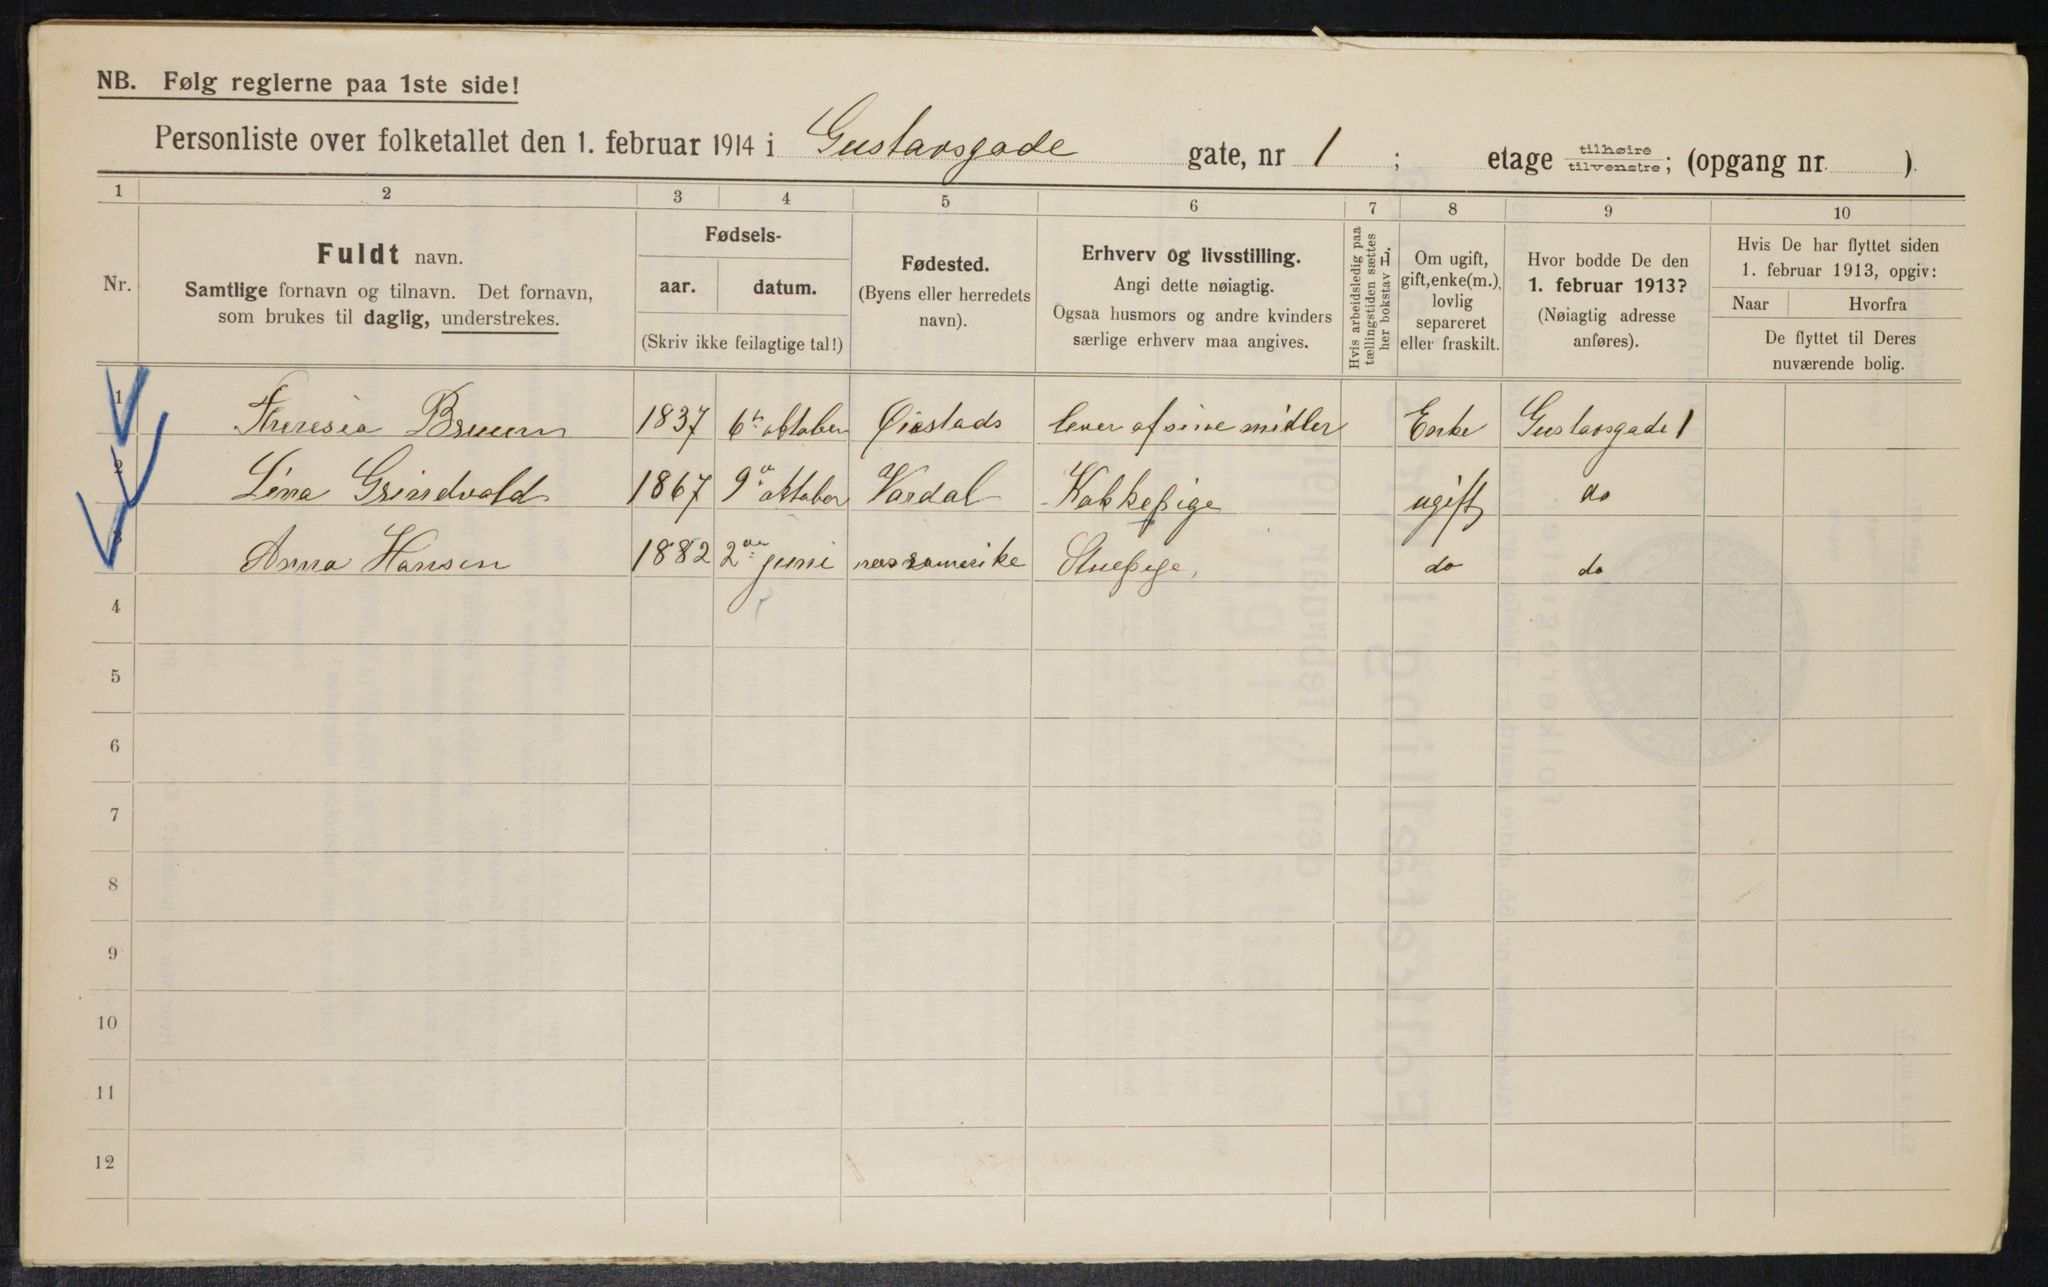 NB. Følg reglerne paa 1ste side!
Personliste over folketallet den 1. februar 1914 i Gustavsgade gate, nr 1 ; etage tilhøire tilvenstre; (opgang nr. ).
1 2 3 4 5 6 7 8 9 10
Nr.
Fuldt navn.
Samtlige fornavn og tilnavn. Det fornavn,
som brukes til daglig, understrekes.
Fødsels-
aar. datum.
(Skriv ikke feilagtige tal!)
Fødested.
(Byens eller herredets
navn).
Erhverv og livsstilling.
Angi dette nøiagtig.
Ogsaa husmors og andre kvinders
særlige erhverv maa angives.
Hvis arbeidsledig paa
tællingstiden sættes
her bokstav L.
Om ugift,
gift, enke(m.),
lovlig
separeret
eller fraskilt.
Hvor bodde De den
1. februar 1913?
(Nøiagtig adresse
anføres).
Hvis De har flyttet siden
1. februar 1913, opgiv:
Naar Hvorfra
De flyttet til Deres
nuværende bolig.
1 Theresia Bruun 1837 6te oktober Øiestads lever af sine midler Enke Gustavsgade 1
2 Lina Grindvold 1867 9de oktober Vardal Kokkepige ugift do
3 Anna Hansen 1882 2den juni nesromerike Stuepige, do do
4
5
6
7
8
9
10
11
12